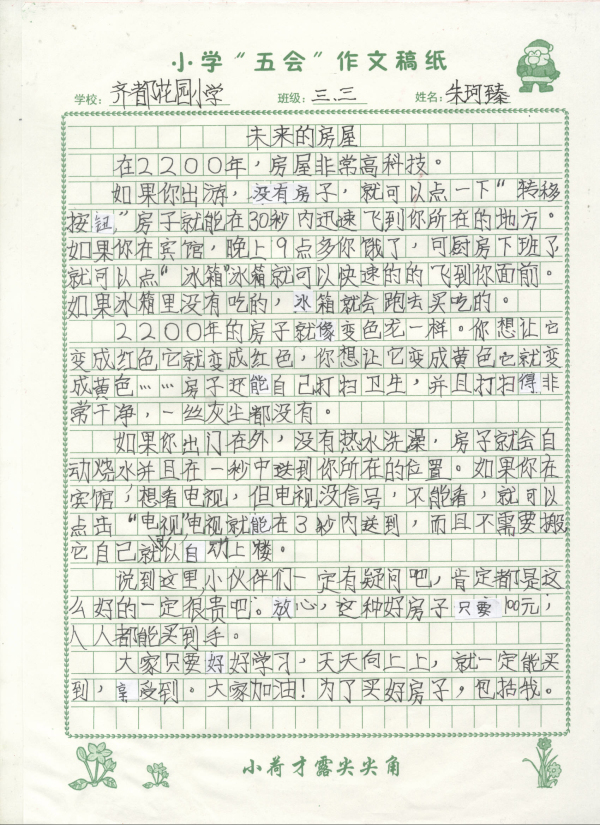 小学“五会”作文稿纸
学校：齐都花园小学 班级：三.三 姓名：朱珂臻
未来的房屋
在2200年，房屋非常高科技。
如果你出游，没有房子，就可以点一下“转移
按钮”房子就能在30秒内迅速飞到你所在的地方。
如果你在宾馆，晚上9点多你饿了，可厨房下班了
就可以点“冰箱”冰箱就可以快速的的飞到你面前。
如果冰箱里没有吃的，冰箱就会跑去买吃的。
2200年的房子就像变色龙一样。你想让它
变成红色它就变成红色，你想让它变成黄色它就变
成黄色……房子还能自己打扫卫生，并且打扫得非
常干净，一丝灰尘都没有。
如果你出门在外，没有热水洗澡，房子就会自
动烧水并且在一秒中送到你所在的位置。如果你在
宾馆，想看电视，但电视没信号，不能看，就可以
点击“电视”电视就能在3秒内送到，而且不需要搬
它自己就可以自动上楼。
说到这里，小伙伴们一定有疑问吧，肯定都是这
么好的一定很贵吧。放心，这种好房子只要100元，
人人都能买到手。
大家只要好好学习，天天向上上，就一定能买
到，享受到。大家加油！为了买好房子，包括我。
小荷才露尖尖角